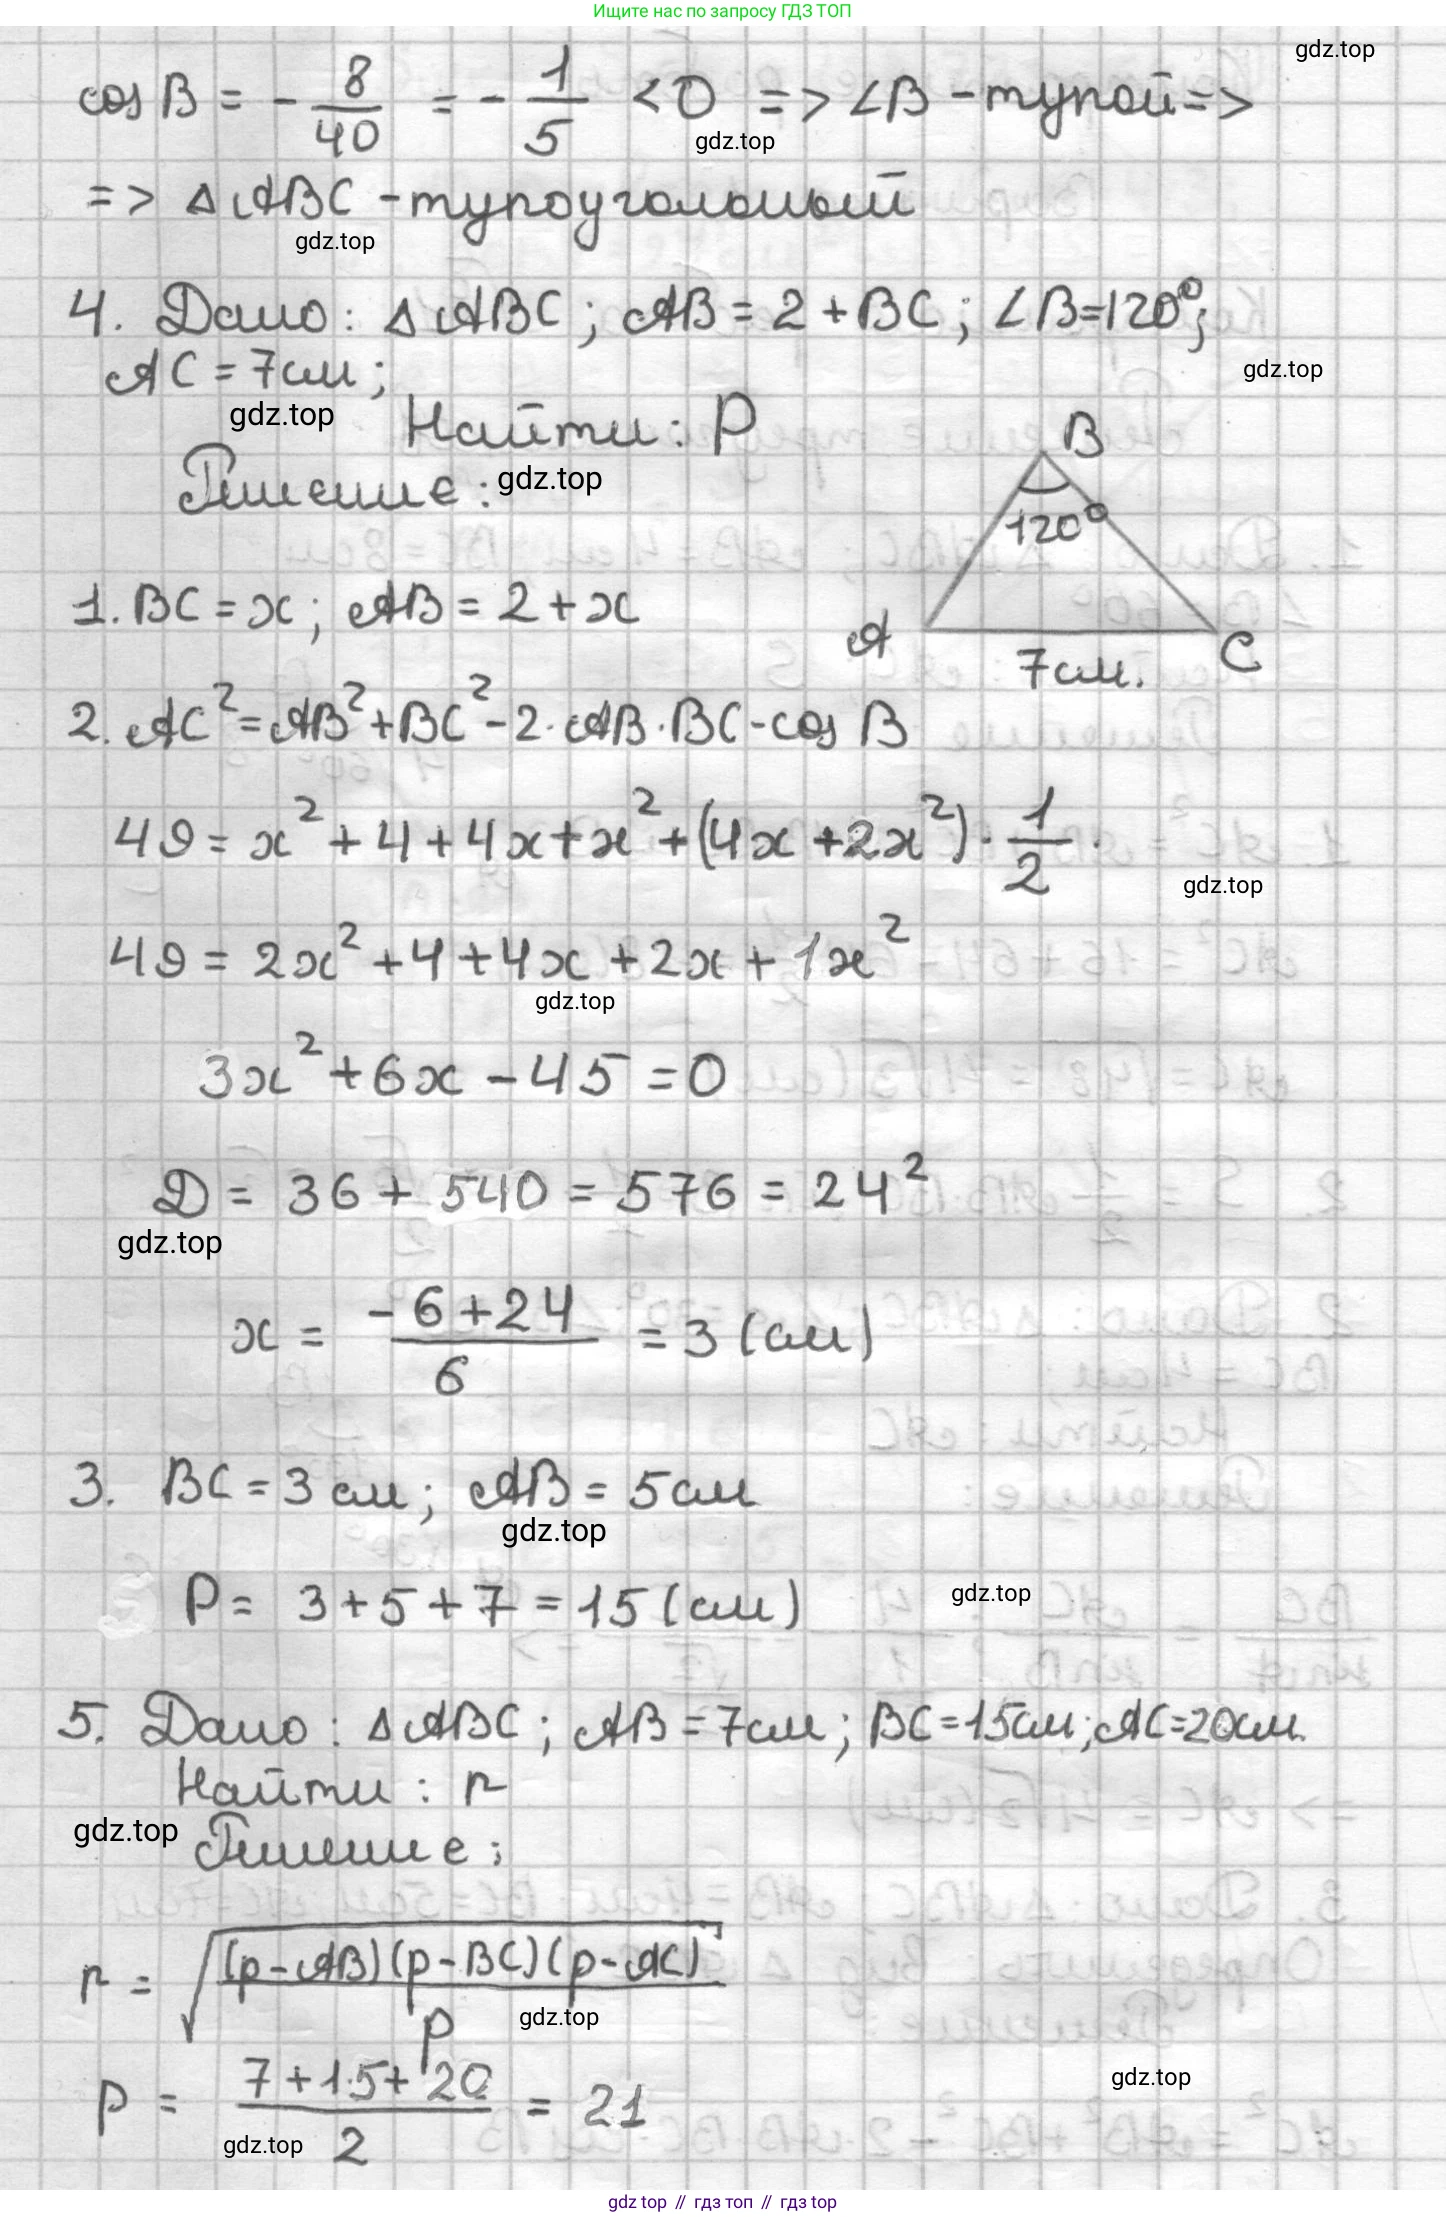 Ищите нас по запросу ГДЗ ТОП
gdz.top
cos B = - 8/40 = - 1/5 < 0 => ∠B - тупой =>
gdz.top
=> Δ ABC - тупоугольный
gdz.top
4. Дано: Δ ABC; AB = 2 + BC; ∠B=120°;
AC = 7см;
gdz.top
gdz.top
Найти: P
Решение:
gdz.top
B
120°
A
C
7см.
1. BC = x; AB = 2 + x
2. AC² = AB² + BC² - 2 · AB · BC - cos B
49 = x² + 4 + 4x + x² + (4x + 2x²) · 1/2 .
gdz.top
49 = 2x² + 4 + 4x + 2x + 1x²
gdz.top
3x² + 6x - 45 = 0
D = 36 + 540 = 576 = 24²
gdz.top
x = (-6 + 24)/6 = 3 (см)
3. BC = 3 см; AB = 5см
gdz.top
P = 3 + 5 + 7 = 15 (см)
gdz.top
5. Дано: Δ ABC; AB = 7см; BC = 15см; AC = 20см.
Найти: r
gdz.top
Решение:
r = √((p - AB)(p - BC)(p - AC)/p)
gdz.top
p = (7 + 15 + 20)/2 = 21
gdz.top
gdz.top
gdz top // гдз топ // гдз top